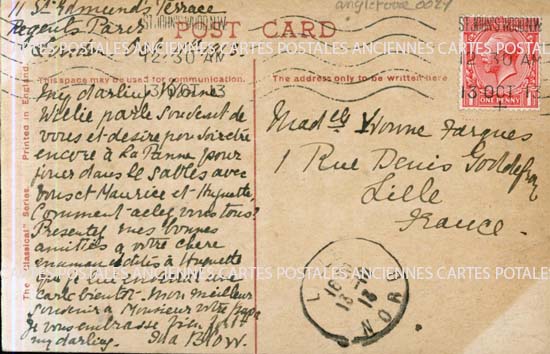 11 St. Edmunds Terrace
Regents Park
London
angleterre 0024
POST CARD
ST JOHN'S WOOD N.W.
12.30 AM
13 OCT 13
ST JOHN'S WOOD N.W.
12.30 AM
13 OCT 13
ONE PENNY
This space may be used for communication.
The address only to be written here
The "Classical" Series. Printed in England.
CARTES POSTALES ANCIENNES CARTES POSTALES ANCIENNES CARTES
my darling Yvonne
Willie parle souvent de
vous et desire pouvoir etre
encore à La Panne pour
jouer dans le sables avec
vous et Maurice et Huguette
Comment allez vous tous?
Presentez mes bonnes
amitiés a votre chere
maman dites à Huguette
que je lui enverrai une
carte bientot. Mon meilleur
souvenir a Monsieur votre Papa
Je vous embrasse bien fort
my darling. Ida Blow.
Madlle Yvonne Fargues
1 Rue Denis Godefroy
Lille
France.
CARTES POSTALES ANCIENNES CARTES POSTALES ANCIENNES CARTES POTALES